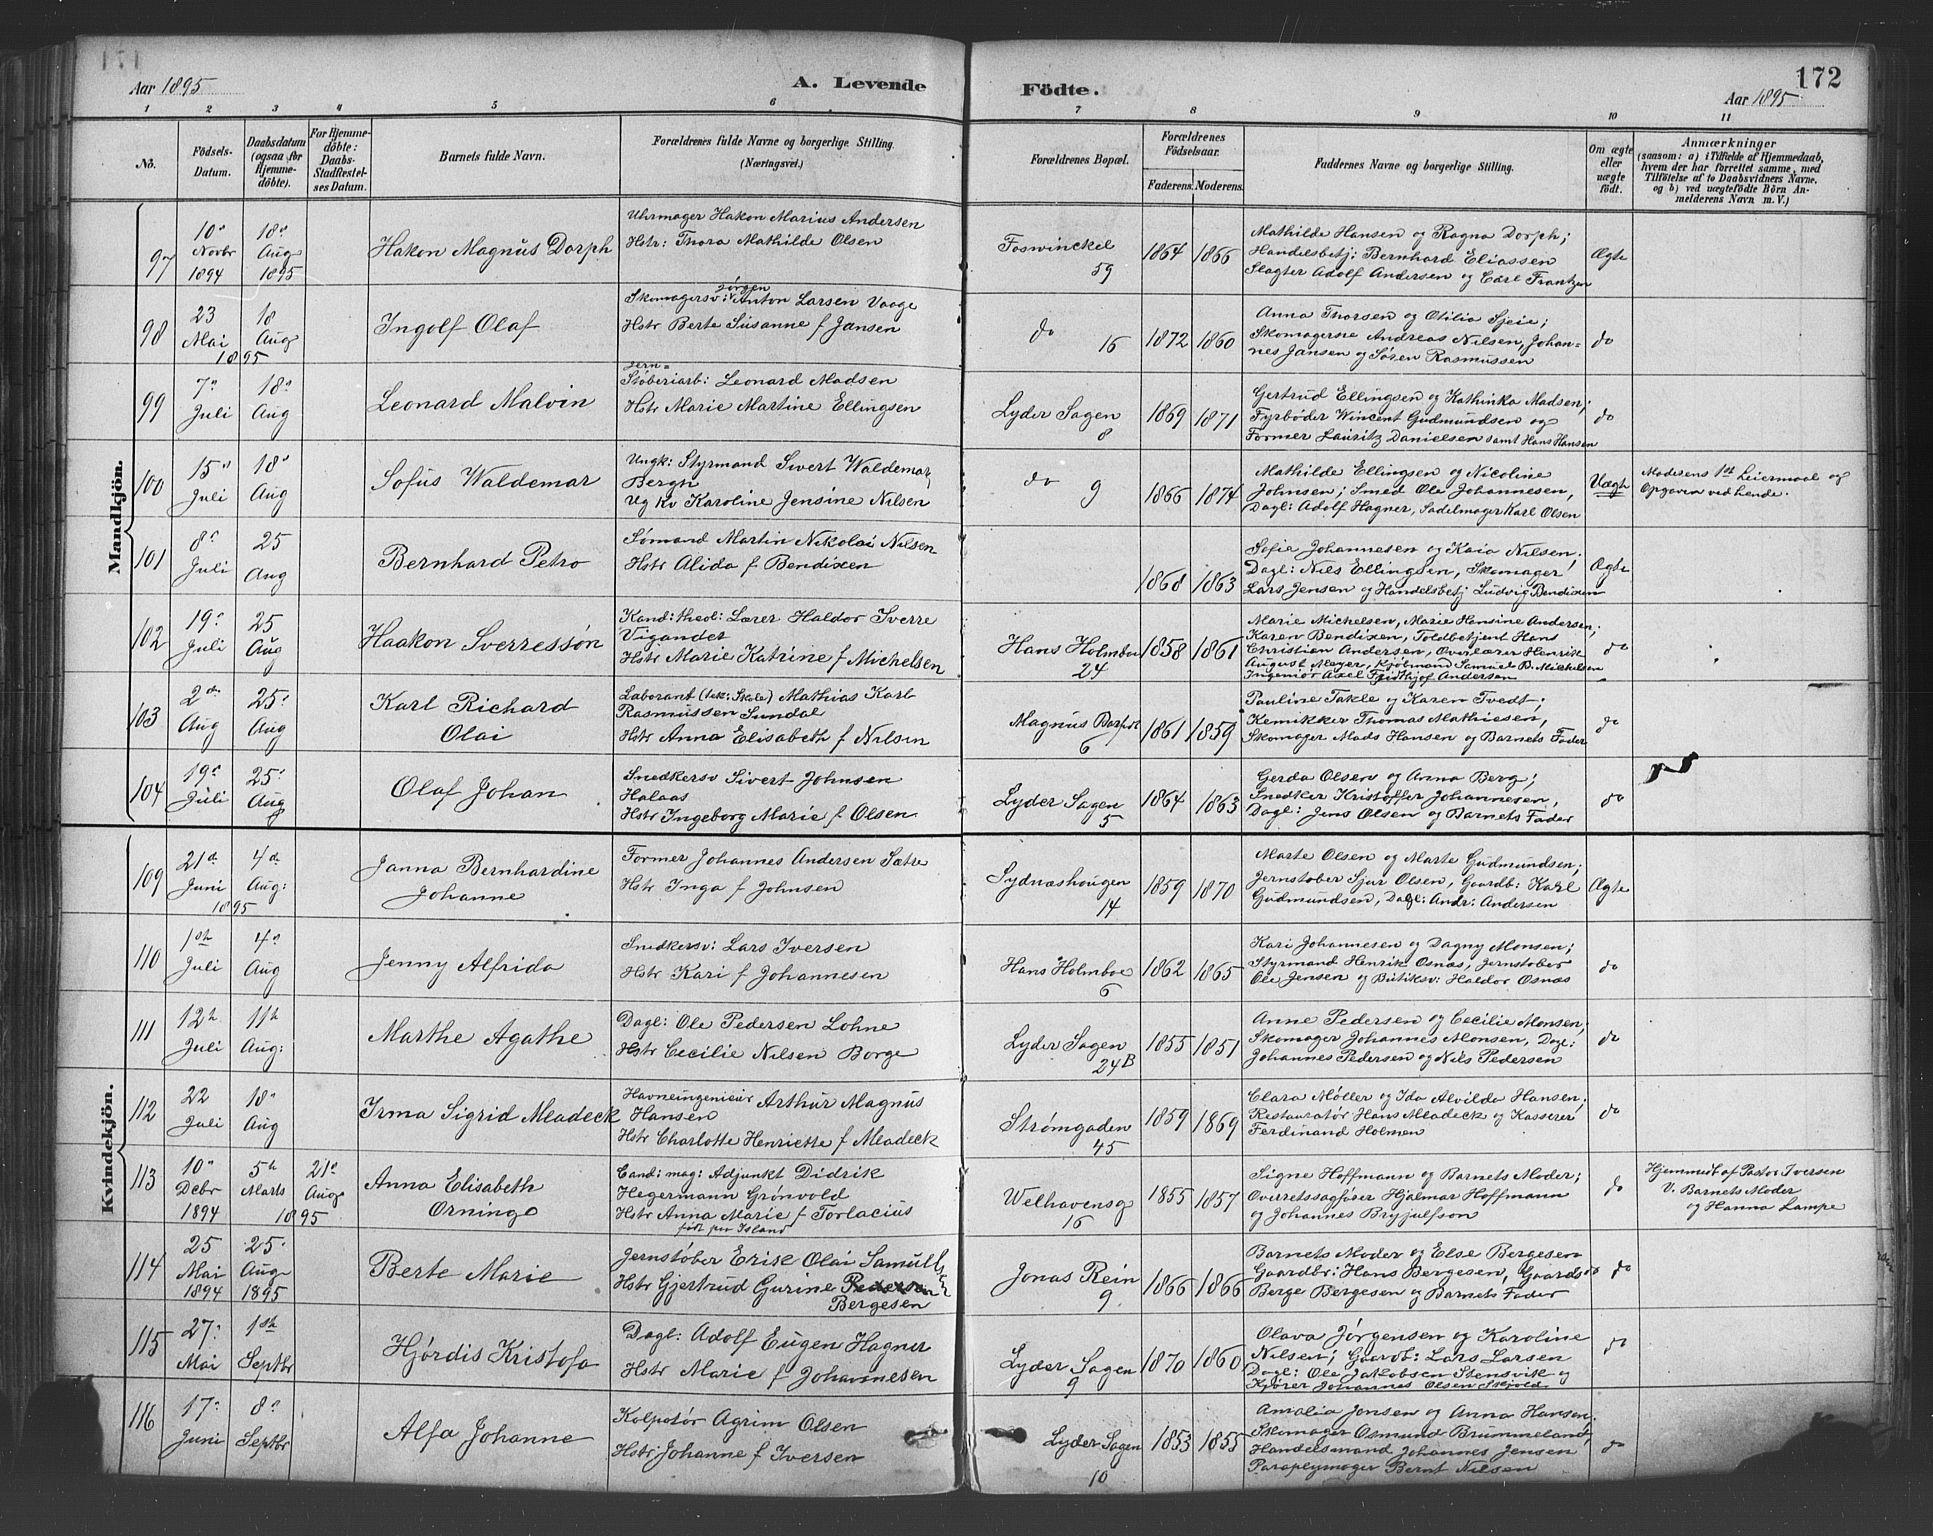 171
172
Aar 1895
A. Levende
Födte.
Aar 1895
1 2 3 4 5 6 7 8 9 10 11
No.
Födsels-
Datum.
Daabsdatum
(ogsaa for
Hjemme-
döbte).
For Hjemme-
döbte:
Daabs-
Stadfæstel-
ses Datum.
Barnets fulde Navn.
Forældrenes fulde Navne og borgerlige Stilling.
(Næringsvei.)
Forældrenes Bopæl.
Forældrenes
Födselsaar.
Faderens. Moderens.
Faddernes Navne og borgerlige Stilling.
Om ægte
eller
uægte
födt.
Anmærkninger
(saasom: a) i Tilfælde af Hjemmedaab,
hvem der har forrettet samme, med
Tilföielse af to Daabsvidners Navne,
og b) ved uægtefödte Börn An-
melderens Navn m. V.)
Mandkjön.
97
10de
Novbr
1894
18de
Aug
1895
Hakon Magnus Dorph
Uhrmager Hakon Marius Andersen
Hstr: Thora Mathilde Olsen
Foswinckel
59
1864 1866
Mathilde Hansen og Ragna Dorph;
Handelsbetj: Bernhard Eliassen
Slagter Adolf Andersen og Carl Frantzen
Ægte
98
23
Mai
18
Aug
1895
Ingolf Olaf
Skomagersv: Jørgen Anton Larsen Vaage
Hstr Berte Susanne f Jansen
do
16
1872 1860
Anna Thorsen og Otilia Speie;
Skomagerne Andreas Nilsen, Johan=
nes Jansen og Søren Rasmussen
do
99
7de
Juli
18de
Aug
Leonard Malvin
Jern=
Støberiarb: Leonard Madsen
Hstr Marie Martine Ellingsen
Lyder Sagen
8
1869 1871
Gertrud Ellingsen og Kathinka Madsen;
Fyrbøder Wincent Gudmundsen og
Former Lauritz Danielsen samt Hans Hansen
do
100
15de
Juli
18de
Aug
Sofus Waldemar
Ungk: Styrmand Sivert Waldemar
Bergh
Ug Kv Karoline Jensine Nilsen
do 9
1866 1874
Mathilde Ellingsen og Nicoline
Johnsen; Smed Ole Johannesen,
Dagl: Adolf Hagner, Sadelmager Karl Olsen
Uægte
Moderens 1ste Leiermaal og
Opgaven ved hende.
101
8de
Juli
25
Aug
Bernhard Petro
Sømand Martin Nikolai Nilsen
Hstr Alida f Bendixen
1868 1863
Sofie Johannesen og Kaia Nilsen;
Dagl: Nils Ellingsen, Skomager
Lars Jensen og Handelsbetj Ludvig Bendixen
Ægte
102
19de
Juli
25
Aug
Haakon Sverressøn
Kand: theol: Lærer Haldor Sverre
Vigander
Hstr Marie Katrine f Michelsen
Hans Holmboe
24
1858 1861
Marie Michelsen, Marie Hansine Andersen;
Karen Bendixen, Toldbetjent Hans
Christian Andersen, Overlærer Henrik
August Meyer, Kjøbmand Samuel B. Michelsen
Ingeniør Axel Fridthjof Andersen
do
103
2den
Aug
25de
Aug
Karl Richard
Olai
Laborant (tek: Skole) Mathias Karl
Rasmussen Sundal
Hstr Anna Elisabeth f Nilsen
Magnus Barfod
6
1861 1859
Pauline Takle og Karen Tvedt;
Kemikker Thomas Mathiesen,
Skomager Mads Hansen og Barnets Fader
do
104
19de
Juli
25de
Aug
Olaf Johan
Snedkersv Sivert Johnsen
Halaas
Hstr Ingeborg Marie f Olsen
Lyder Sagen
5
1864 1863
Gerda Olsen og Anna Berg;
Snedker Kristoffer Johannesen,
Dagl: Jens Olsen og Barnets Fader
do
Kvindekjön.
109
21de
Juni
4de
Aug:
1895
Janna Bernhardine
Johanne
Former Johannes Andersen Sætre
Hstr Inga f Johnsen
Sydnæshougen
14
1859 1870
Marte Olsen og Marte Gudmundsen;
Jernstøber Sjur Olsen, Gaardb: Karl
Gudmundsen, Dagl: Andr: Andersen
Ægte
110
1ste
Juli
4de
Aug
Jenny Alfrida
Snedkersv: Lars Iversen
Hstr Kari f Johannesen
Hans Holmboe
6
1862 1865
Kari Johannesen og Dagny Monsen;
Styrmand Henrik Osnæs, Jernstøber
Ole Jensen og Butiksv: Haldor Osnæs
do
111
12te
Juli
11te
Aug:
Marthe Agathe
Dagl: Ole Pedersen Lohne
Hstr Cecilie Nilsen Borge
Lyder Sagen
24B
1855 1851
Anne Pedersen og Cecilie Monsen;
Skomager Johannes Monsen, Dagl:
Johannes Pedersen og Nils Pedersen
do
112
22
Juli
18de
Aug
Irma Sigrid Meadeck
Havneingeniør Arthur Magnus
Hansen
Hstr Charlotte Henriette f Meadeck
Strømgaden
45
1859 1869
Clara Møller og Ida Alvilda Hansen;
Restauratør Hans Meadeck og Kasserer
Ferdinand Holmen
do
113
10de
Debr
1894
5te
Marts
21de
Aug
1895
Anna Elisabeth
Orninge
Cand: mag: Adjunkt Didrik
Hegermann Grønvold
Hstr Anna Marie f Torlacius
født paa Island
Welhavensg
16
1855 1857
Signe Hoffmann og Barnets Moder;
Overretssagfører Hjalmar Hoffmann
og Johannes Brynjulfson
do
Hjemmedt af Pastor Iversen
V. Barnets Moder
og Hanna Lampe
114
25
Mai
1894
25de
Aug
1895
Berte Marie
Jernstøber Erik Olai Samuelsen
Hstr Gjertrud Gurine
Bergesen
Jonas Rein
9
1866 1866
Barnets Moder og Else Bergesen
Gaardbr: Hans Bergesen, Gaards
Berge Bergesen og Barnets Fader
do
115
27de
Mai
1ste
Septbr
Hjørdis Kristofa
Dagl: Adolf Eugen Hagner
Hstr Marie f Johannesen
Lyder Sagen
9
1870 1860
Olava Jørgensen og Karoline
Nilsen; Gaardb: Lars Larsen
Dagl: Ole Jakobsen Stensvik og
Kjører Johannes Olsen Skjold
do
116
17de
Juni
8de
Septbr
Alfa Johanne
Kolportør Agrim Olsen
Hstr Johanne f Iversen
Lyder Sagen
10
1853 1855
Amalia Jensen og Anna Hansen;
Skomager Osmund Brummeland,
Handelsmand Johannes Jensen
Paraplymager Bernt Nilsen
do